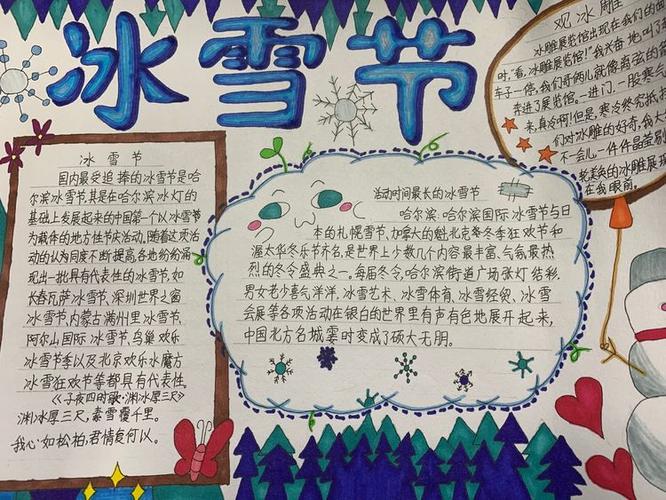 冰雪节
冰雪节
国内最受追捧的冰雪节是哈
尔滨冰雪节,其是在哈尔滨冰灯的
基础上发展起来的中国第一个以冰雪节
为载体的地方性节庆活动。随着这项活
动的认为同度不断提高各地纷纷涌
现出一批具有代表性的冰雪节,如
长春瓦萨冰雪节、深圳世界之窗
冰雪节、内蒙古满州里冰雪节、
阿尔山国际冰雪节、鸟巢欢乐
冰雪节季以及北京欢乐水魔方
冰雪狂欢节等都具有代表性。
《子夜四时歌·渊冰厚三尺》
渊冰厚三尺,素雪覆千里。
我心如松柏,君情复何以。
活动时间最长的冰雪节
哈尔滨:哈尔滨国际冰雪节与日
本的札幌雪节、加拿大的魁北克冬季狂欢节和
渥太华冬乐节齐名,是世界上少数几个内容最丰富、气氛最热
烈的冬令盛典之一,每届冬令,哈尔滨街道广场张灯结彩,
男女老少喜气洋洋,冰雪艺术、冰雪体育、冰雪经贸、冰雪
会展等各项活动在银白的世界里有声有色地展开起来,
中国北方名城霎时变成了硕大无朋。
观冰雕
冰雕展览馆出现在我们的
叶,“看,冰雕展览馆!”我兴奋地叫
车子一停,我们哥俩儿就像离弦的
奔进了展览馆。一进门,一股寒
来,真冷啊!但是,寒冷终究抵
们对冰雕的好奇,我
不一会儿一件件晶莹
的冰雕展
在我眼前。